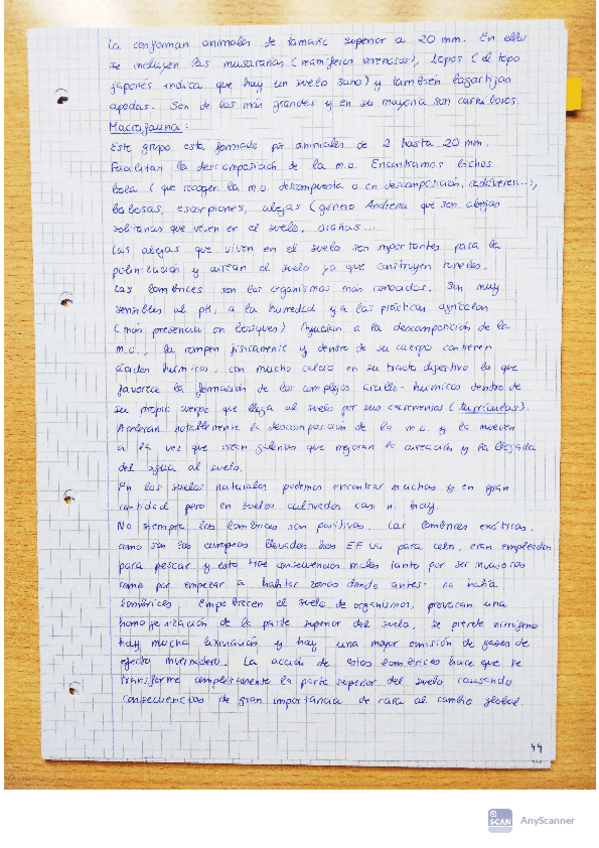 La conforman animales de tamaño superior a 20 mm. En ella
se incluyen las musarañas (mamíferos venenosos), topos (el topo
japonés indica que hay un suelo sano) y también lagartijas
apodas. Son de los más grandes y en su mayoría son carnívoros.
Macrofauna:
Este grupo está formado por animales de 2 hasta 20 mm.
Facilitan la descomposición de la m.o. Encontramos bichos
bola (que recogen la m.o. descompuesta o en descomposición, cadáveres...),
babosas, escorpiones, abejas (género Andrena que son abejas
solitarias que viven en el suelo, arañas...
Las abejas que viven en el suelo son importantes para la
polinización y airean el suelo ya que construyen túneles.
Las lombrices son los organismos más conocidos. Son muy
sensibles al pH, a la humedad y a las prácticas agrícolas
(más presencia en bosques). Ayudan a la descomposición de la
m.o., la rompen físicamente y dentro de su cuerpo contienen
ácidos húmicos, con mucho calcio en su tracto digestivo lo que
favorece la formación de los complejos arcillo-húmicos dentro de
su propio cuerpo que llega al suelo por sus excrementos (turrículos).
Aceleran notablemente la descomposición de la m.o. y la mueven
a la vez que crean galerías que mejoran la aireación y la llegada
del agua al suelo.
En los suelos naturales podemos encontrar muchas y en gran
cantidad pero en suelos cultivados casi ni hay.
No siempre las lombrices son positivas. Las lombrices exóticas,
como son las europeas llevadas a EEUU para, eran empleadas
para pescar y esto trae consecuencias malas tanto por ser invasoras
como por empezar a habitar zonas donde antes no había
lombrices. Empobrecen el suelo de organismos, provocan una
homogenización de la parte superior del suelo, se pierde nitrógeno
hay mucha lixiviación y hay una mayor emisión de gases de
efecto invernadero. La acción de estas lombrices hace que se
transforme completamente la parte superior del suelo causando
consecuencias de gran importancia de cara al cambio global.
44
SCAN AnyScanner